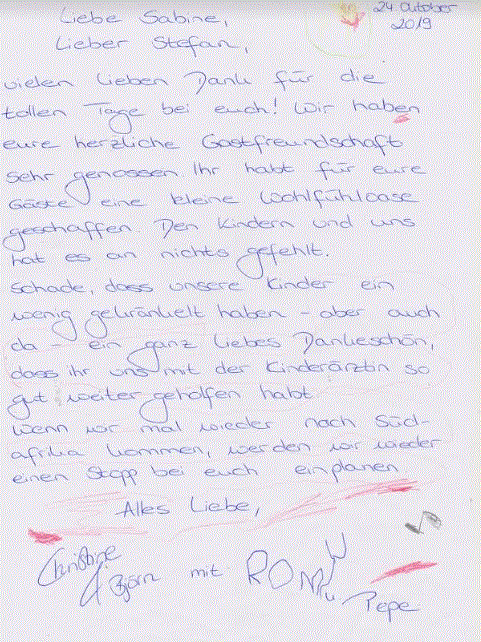 24 October
2019
Liebe Sabine,
Lieber Stefan,
vielen lieben Dank für die
tollen Tage bei euch! Wir haben
eure herzliche Gastfreundschaft
sehr genossen Ihr habt für eure
Gäste eine kleine Wohlfühloase
geschaffen. Den Kindern und uns
hat es an nichts gefehlt.
Schade, dass unsere Kinder ein
wenig gekränkelt haben - aber auch
da - ein ganz liebes Dankeschön,
dass ihr uns mit der Kinderärztin so
gut weiter geholfen habt
Wenn wir mal wieder nach Süd-
afrika kommen, werden wir wieder
einen Stopp bei euch einplanen
Alles Liebe,
Christine
& Björn mit
Pepe